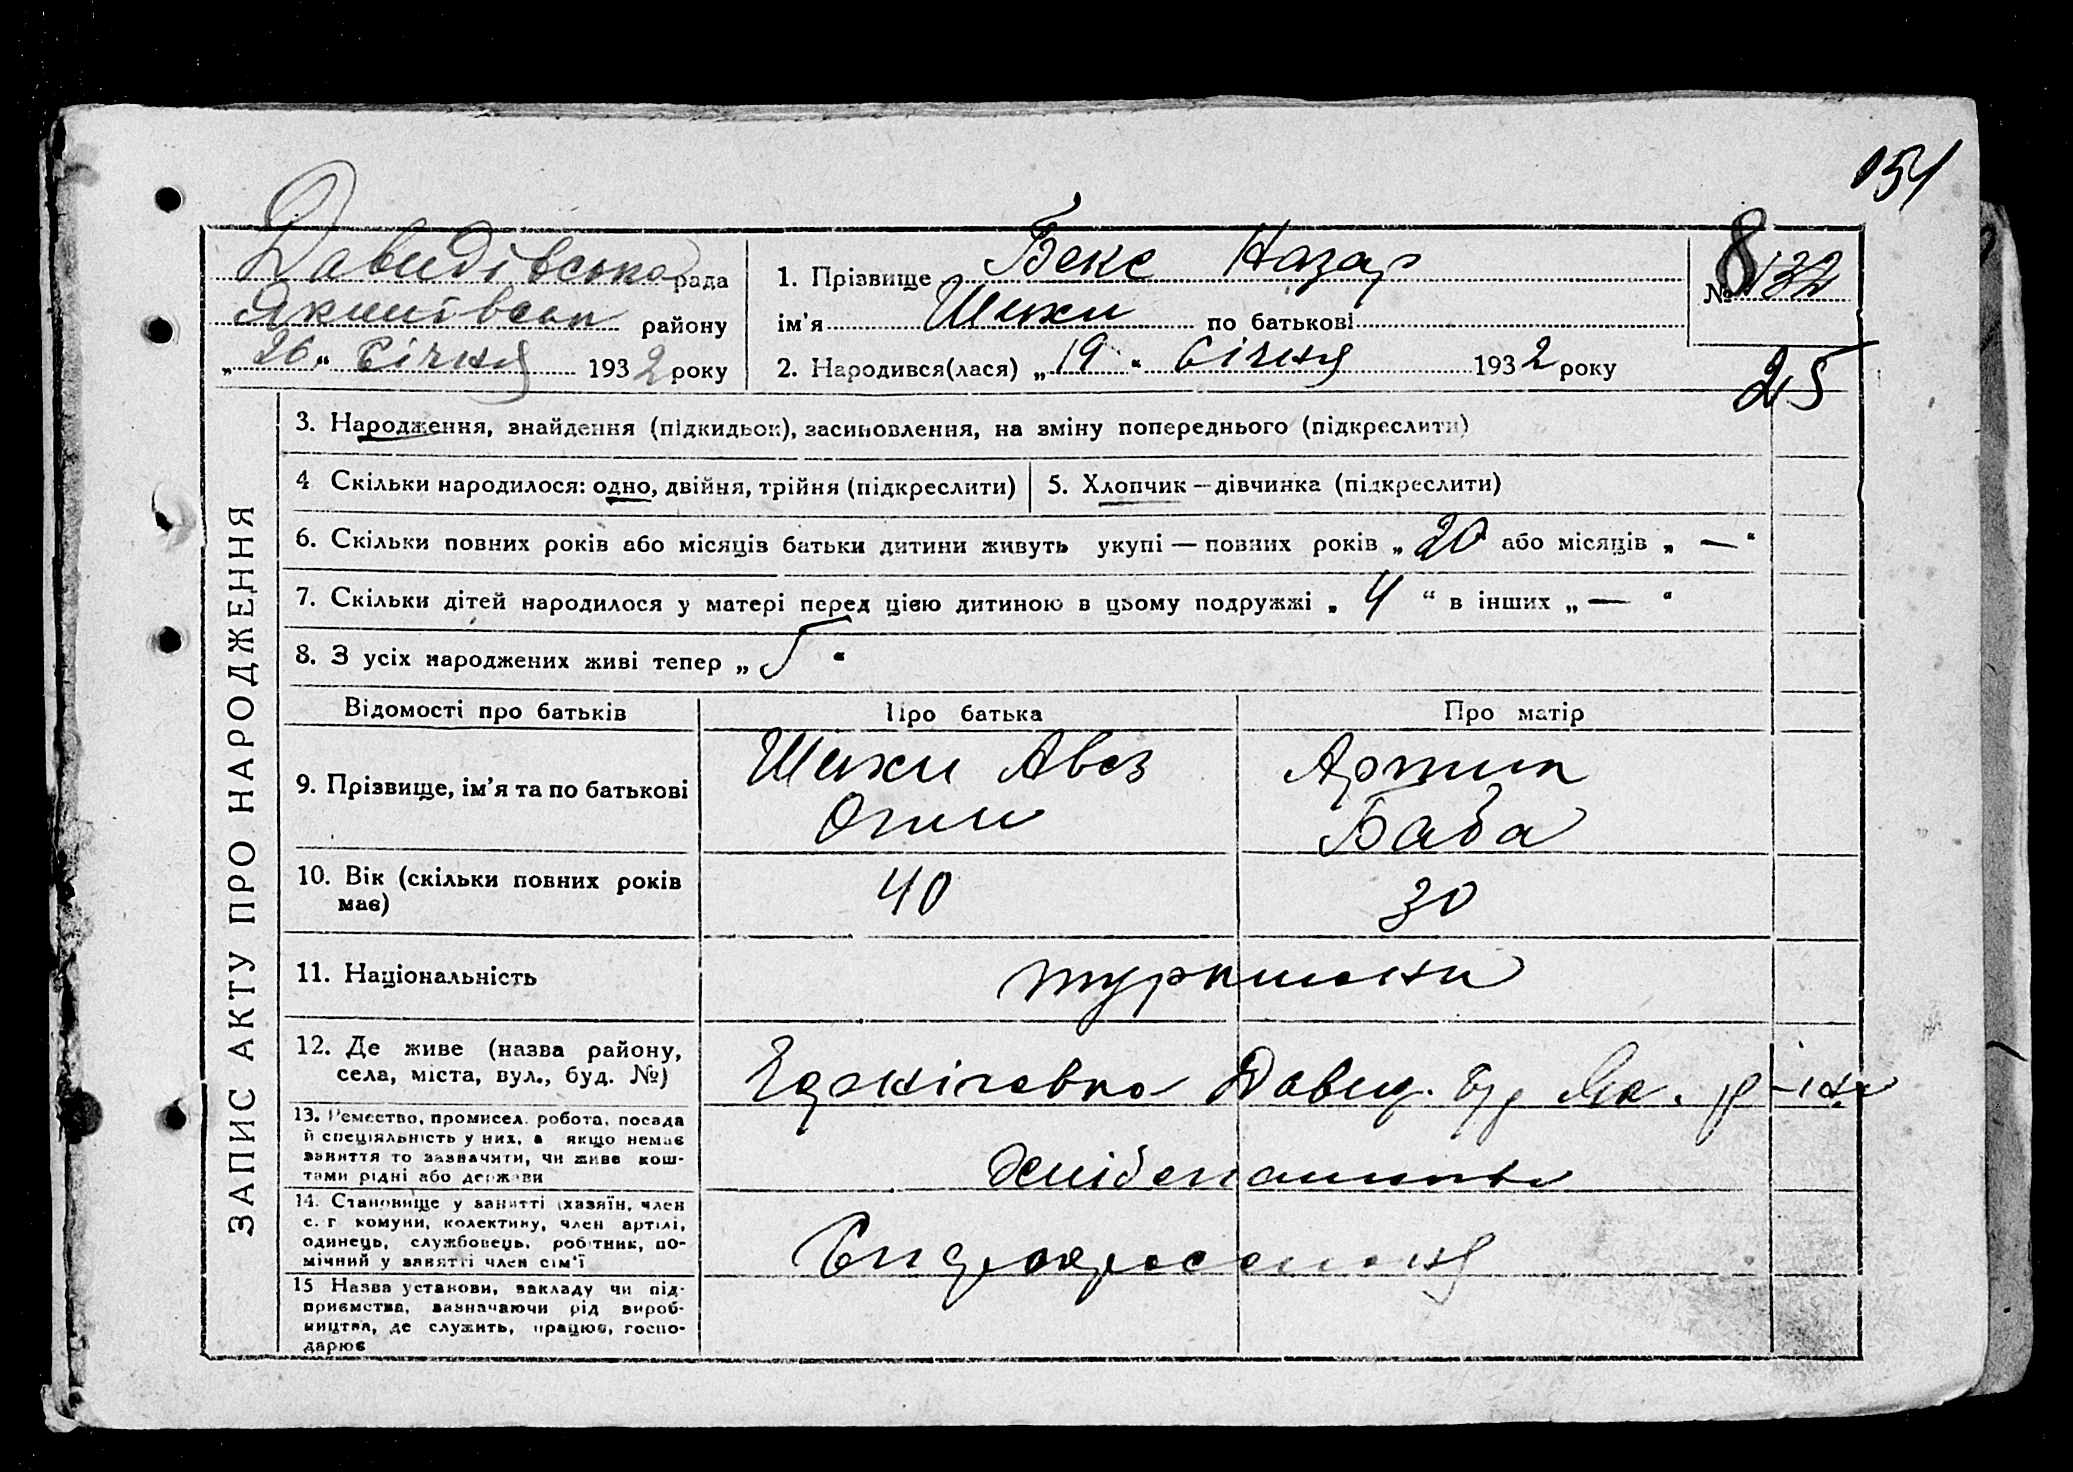 154
Давидівська рада
Якимівськ району
„26“ січня 1932 року
1. Прізвище Беке Назар
ім'я Шихи по батькові
2. Народився(лася) „19“ січня 1932 року
№ 8 132
25
ЗАПИС АКТУ ПРО НАРОДЖЕННЯ
3. Народження, знайдення (підкидьок), засиновлення, на зміну попереднього (підкреслити)
4 Скільки народилося: одно, двійня, трійня (підкреслити)
5. Хлопчик — дівчинка (підкреслити)
6. Скільки повних років або місяців батьки дитини живуть укупі — повних років „20 або місяців „ — “
7. Скільки дітей народилося у матері перед цією дитиною в цьому подружжі „ 4 “ в інших „ — “
8. З усіх народжених живі тепер „ 5 “
Відомості про батьків
Про батька
Про матір
9. Прізвище, ім'я та по батькові
Шихи Авез
Огли
Артик
Баба
10. Вік (скільки повних років
має)
40
30
11. Національність
туркмени
12. Де живе (назва району,
села, міста, вул., буд. №)
Давид. Як. р-ну
13. Ремество, промисел, робота, посада
й спеціяльність у них, а якщо немає
заняття то зазначити, чи живе кош-
тами рідні або держави
хліборобство
14. Становище у занятті (хазяїн, член
с. г комуни, колективу, член артілі,
одинець, службовець, робітник, по-
мічний у занятті член сім'ї
15 Назва установи, закладу чи під-
приємства, зазначаючи рід вироб-
ництва, де служить, працює, госпо-
дарює